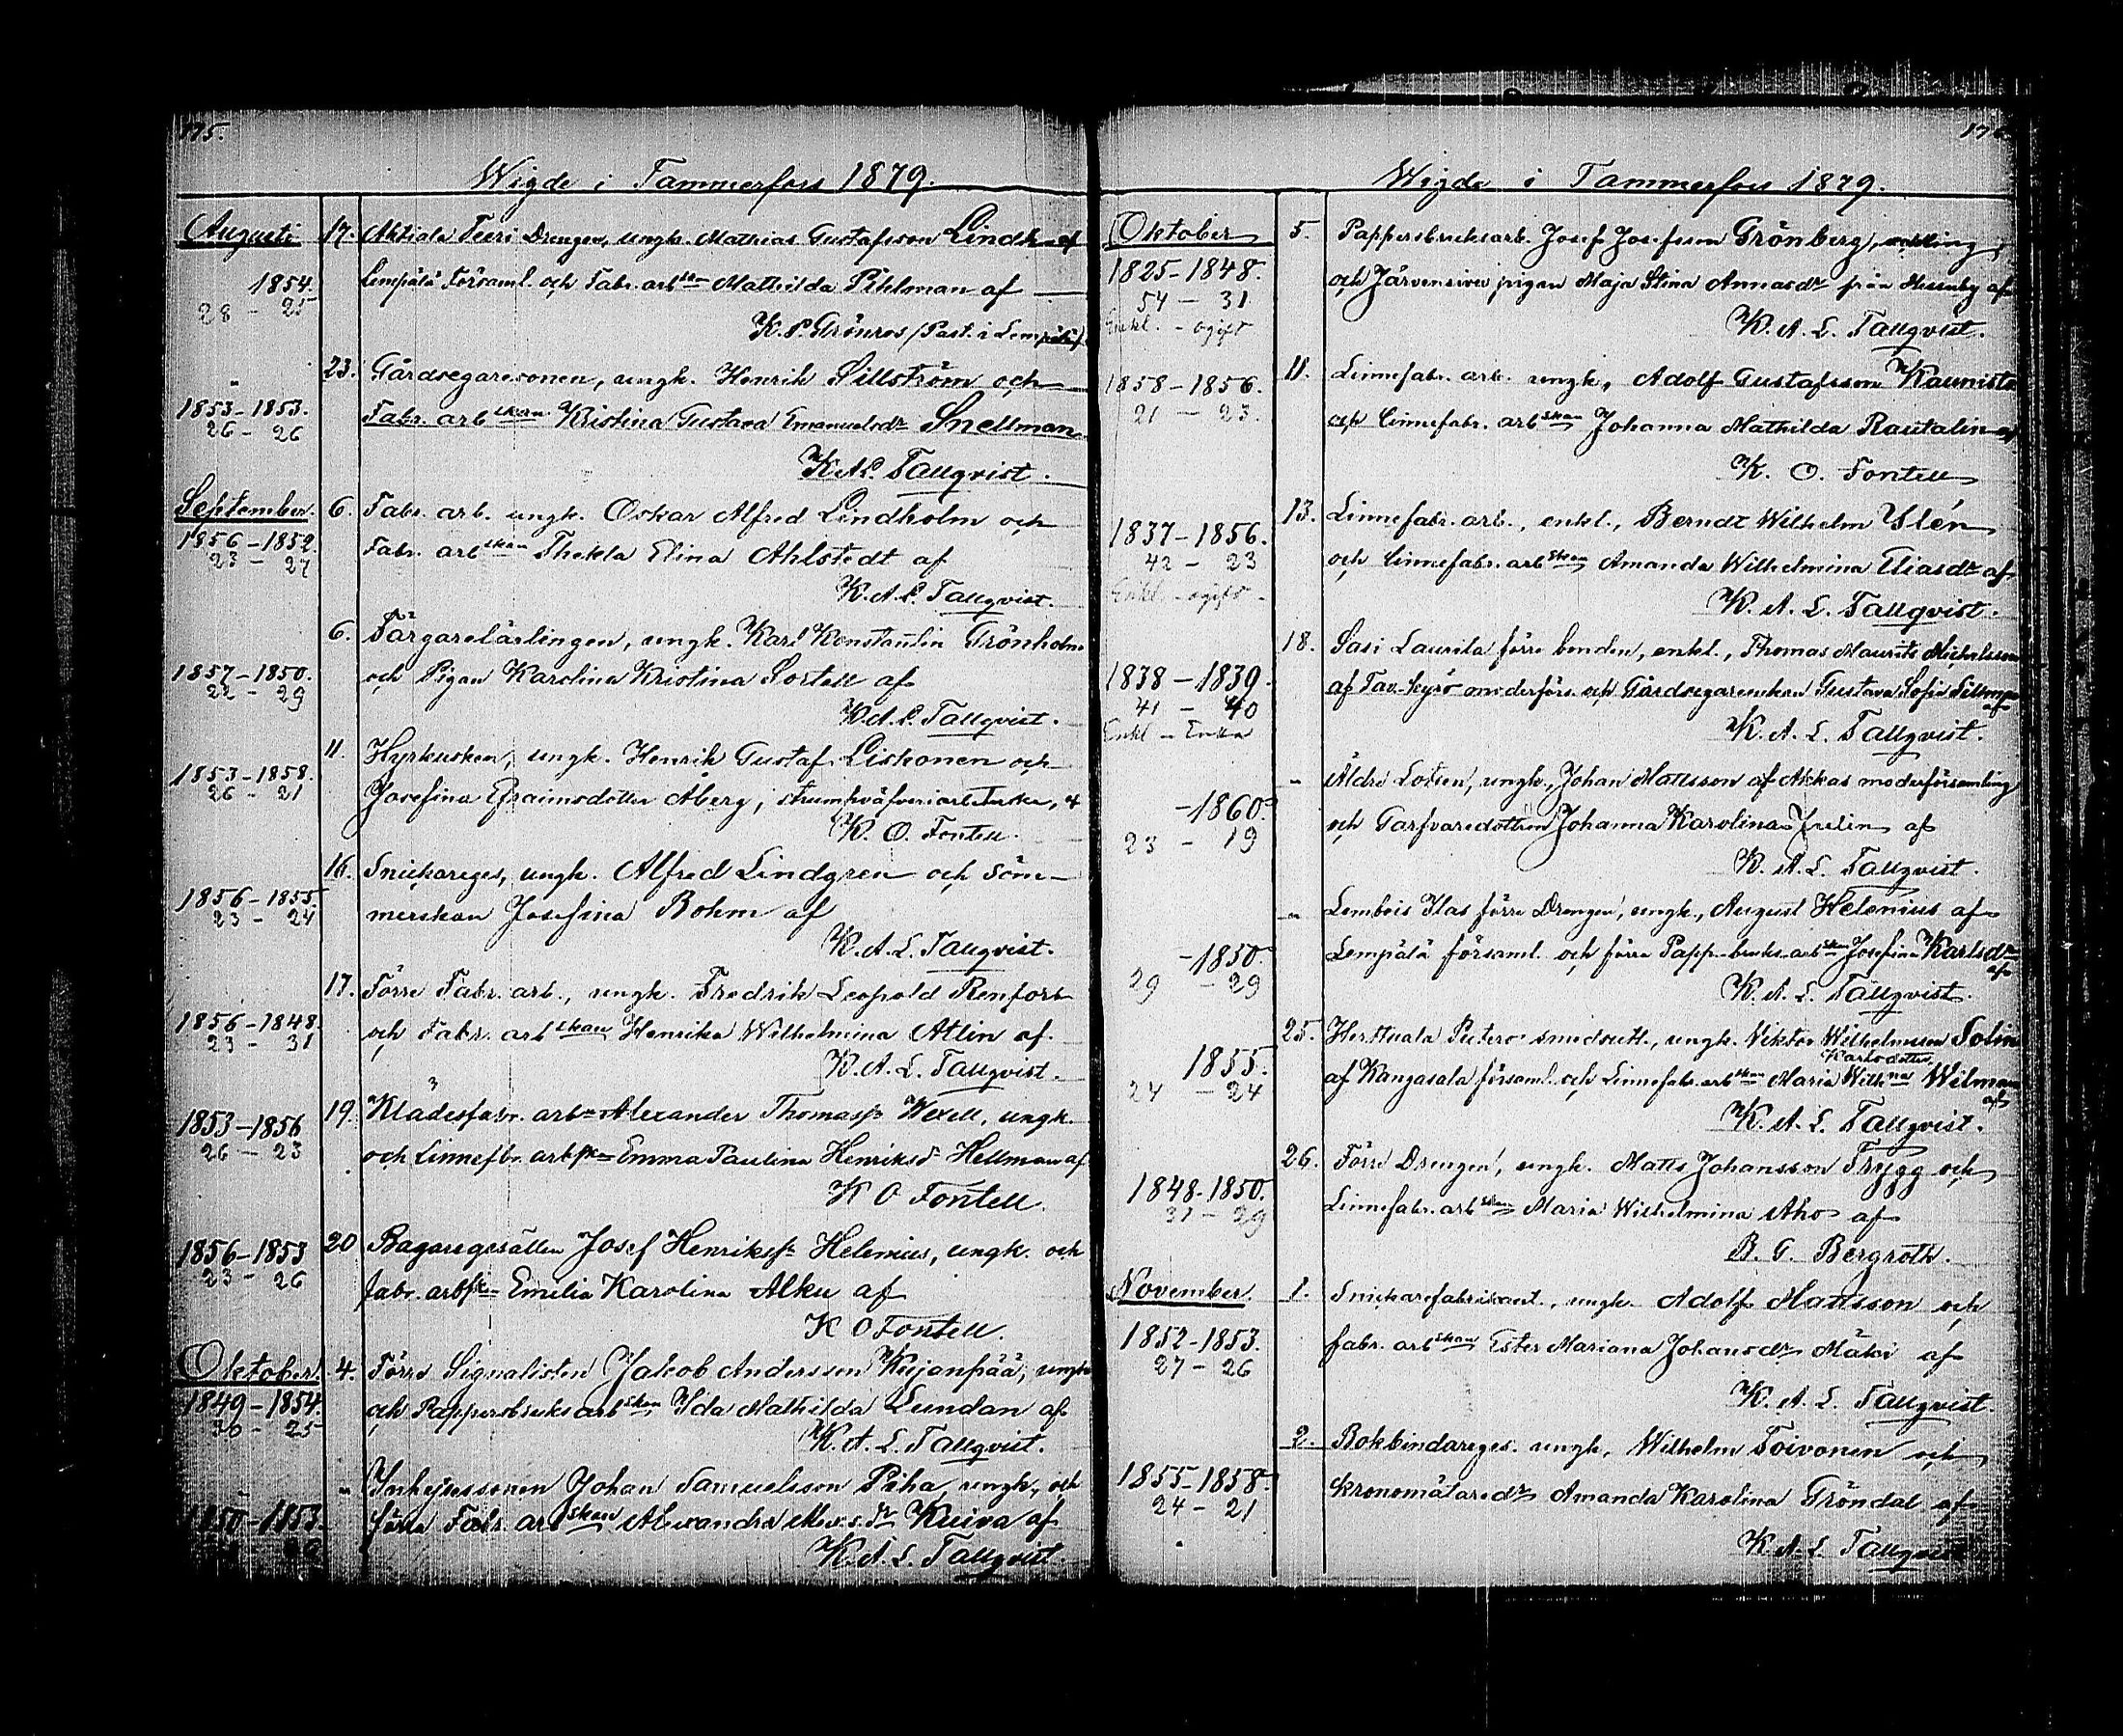 175.
Wigde i Tammerfors 1879.
Augusti 17. Ahtiala Teeri Drengen, ungk. Mathias Gustafsson Lindh af
1854. Lempälä Församl. och Fabr. arbskan Mathilda Pihlman af
28 - 25
K. P. Grönros (Past. i Lempälä)
23. Gårdsegaresonen, ungk. Henrik Sillström och
1853-1853. Fabr. arbskan Kristina Gustava Emanuelsdr Snellman
26 - 26
K.A.L. Tallqvist.
September. 6. Fabr. arb. ungk. Oskar Alfred Lindholm och
1856-1852. Fabr. arbskan Thekla Elina Ahlstedt af
23 - 27
K.A.L. Tallqvist.
6. Färgarelärlingen, ungk. Karl Konstantin Grönholm
1857-1850. och Pigan Karolina Kristina Sortell af
22 - 29
K.A.L. Tallqvist.
11. Hyrkusken, ungk. Henrik Gustaf Liskonen och
1853-1858. Josefina Efraimsdotter Åberg, strumpväfveriarbeterska, af
26 - 21
K. O. Fontell.
16. Snickareges, ungk. Alfred Lindgren och Söm-
1856-1855. merskan Josefina Bohm af
23 - 24
K.A.L. Tallqvist.
17. Förre Fabr. arb., ungk. Fredrik Leopold Renfors
1856-1848. och Fabr. arbskan Henrika Wilhelmina Atlin af
23 - 31
K.A.L. Tallqvist.
19. Klädesfabr. arbn Alexander Thomass Wexell, ungk.
1853-1856 och Linnefbr. arbskan Emma Paulina Henriksdr Hellman af
26 - 23
K O Fontell.
20 Bagaregesällen Josef Henrikss Helenius, ungk. och
1856-1853 fabr. arbskan Emilia Karolina Alku af
23 - 26
K O Fontell.
Oktober. 4. Förre Signalisten Jakob Andersson Kujanpää, ungk.
1849-1854. och Pappersbruks arbskan Ida Mathilda Lundan af
30 - 25
K.A.L. Tallqvist.
" Inhysessonen Johan Samuelsson Piha, ungk., och
1850-1853. förra Fabr. arbskan Alexandra Kuiva af
K.A.L. Tallqvist.
176
Wigde i Tammerfors 1879.
Oktober 5. Pappersbruksarb. Josef Josefsson Grönberg, enkling,
1825-1848. och Järvensivu pigan Maja Stina Annasdr från Messuby af
54 - 31
Enkl. - ogift
K.A.L. Tallqvist.
11. Linnefabr. arb. ungk. Adolf Gustafsson Kaunisto
1858-1856. och Linnefabr. arbskan Johanna Mathilda Rautalin af
21 - 23.
K. O. Fontell
13. Linnefabr. arb., enkl., Berndt Wilhelm Ylén
1837-1856. och Linnefabr. arbskan Amanda Wilhelmina Eliasdr af
42 - 23
Enkl. - ogift -
K.A.L. Tallqvist.
18. Sasi Laurila förre bonden, enkl., Thomas Maurits Michelsson
1838-1839. af Tav. Kyrö moderförs. och Gårdsegareenkan Gustava Sofia
41 - 40
Enkl - Enka
K.A.L. Tallqvist.
" Äldre Lotsen, ungk., Johan Mattsson af Akkas moderförsamling
-1860. och Garfvaredottren Johanna Karolina Juselin af
23 - 19
K.A.L. Tallqvist.
" Lembois Ylas förre Drengen, ungk., August Helenius af
-1850. Lempälä församl. och förra Papp.bruks-arbskan Josefina Karlsdr af
29 - 29
K.A.L. Tallqvist.
25. Herttuala Putero smedsutl., ungk. Viktor Wilhelmsson Solin
1855. af Kangasala församl. och Linnefabr. arbskan Maria Wilhna Karlsdotter Wilman af
24 - 24
K.A.L. Tallqvist.
26. Förre Drengen, ungk. Matts Johansson Trygg och
1848-1850. Linnefabr. arbskan Maria Wilhelmina Aho af
31 - 29
B. G. Bergroth.
November. 1. Snickarefabrikant., ungk. Adolf Mattsson och
1852-1853. fabr. arbskan Ester Mariana Johansdr Mäki af
27 - 26
K.A.L. Tallqvist.
2. Bokbindareges. ungk. Wilhelm Toivonen och
1855-1858. kronomätaredr Amanda Karolina Gröndal af
24 - 21
K.A.L. Tallqvist